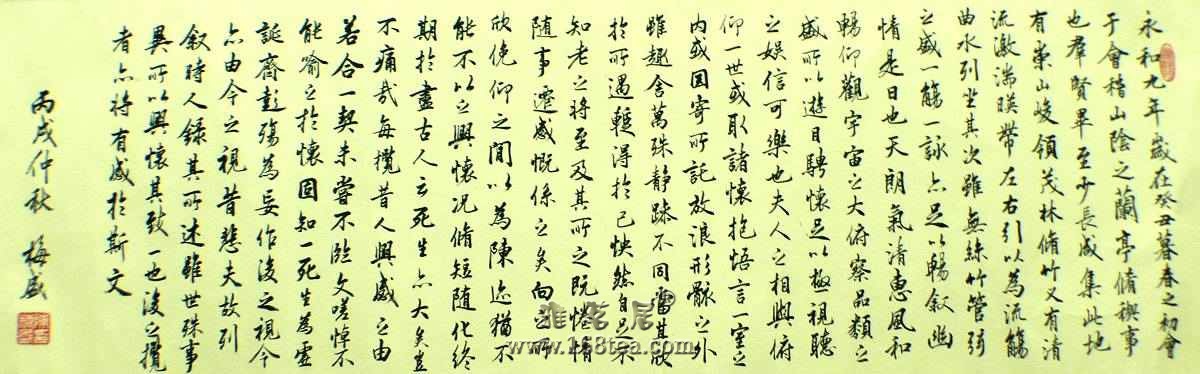 永和九年歲在癸丑暮春之初會
于會稽山陰之蘭亭脩禊事
也群賢畢至少長咸集此地
有崇山峻領茂林脩竹又有清
流激湍暎帶左右引以為流觴
曲水列坐其次雖無絲竹管弦
之盛一觴一詠亦足以暢敘幽
情是日也天朗氣清惠風和
暢仰觀宇宙之大俯察品類之
盛所以遊目騁懷足以極視聽
之娛信可樂也夫人之相與俯
仰一世或取諸懷抱悟言一室之
內或因寄所託放浪形骸之外
雖趣舍萬殊靜躁不同當其欣
於所遇暫得於己怏然自足不
知老之將至及其所之既惓情
隨事遷感慨係之矣向之所
欣俛仰之間以為陳迹猶不
能不以之興懷況脩短隨化終
期於盡古人云死生亦大矣豈
不痛哉每攬昔人興感之由
若合一契未嘗不臨文嗟悼不
能喻之於懷固知一死生為虛
誕齊彭殤為妄作後之視今
亦由今之視昔悲夫故列
敘時人錄其所述雖世殊事
異所以興懷其致一也後之攬
者亦將有感於斯文
丙戌仲秋 梅盛
雅茗居®
www.168tea.com